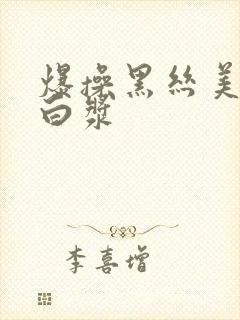 爆操黑丝美
白浆
李喜增